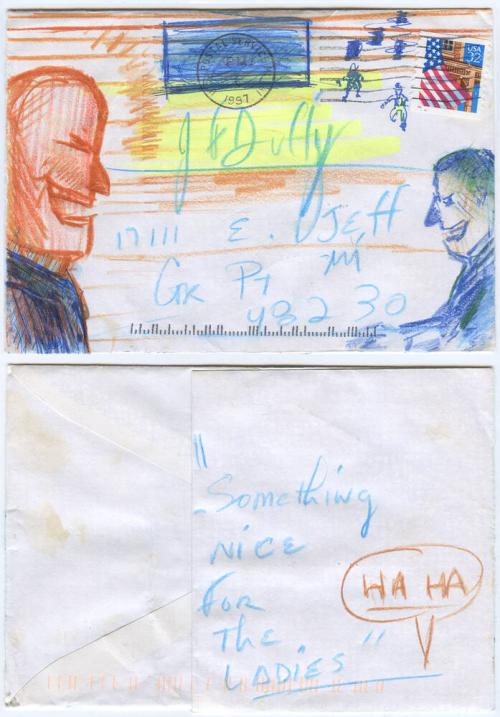 1997
USA
32
J F Duffy
17111 E. Jeff
Gr Pt Mi
48230
"Something
NICE
FOR
THE
LADIES"
HA HA